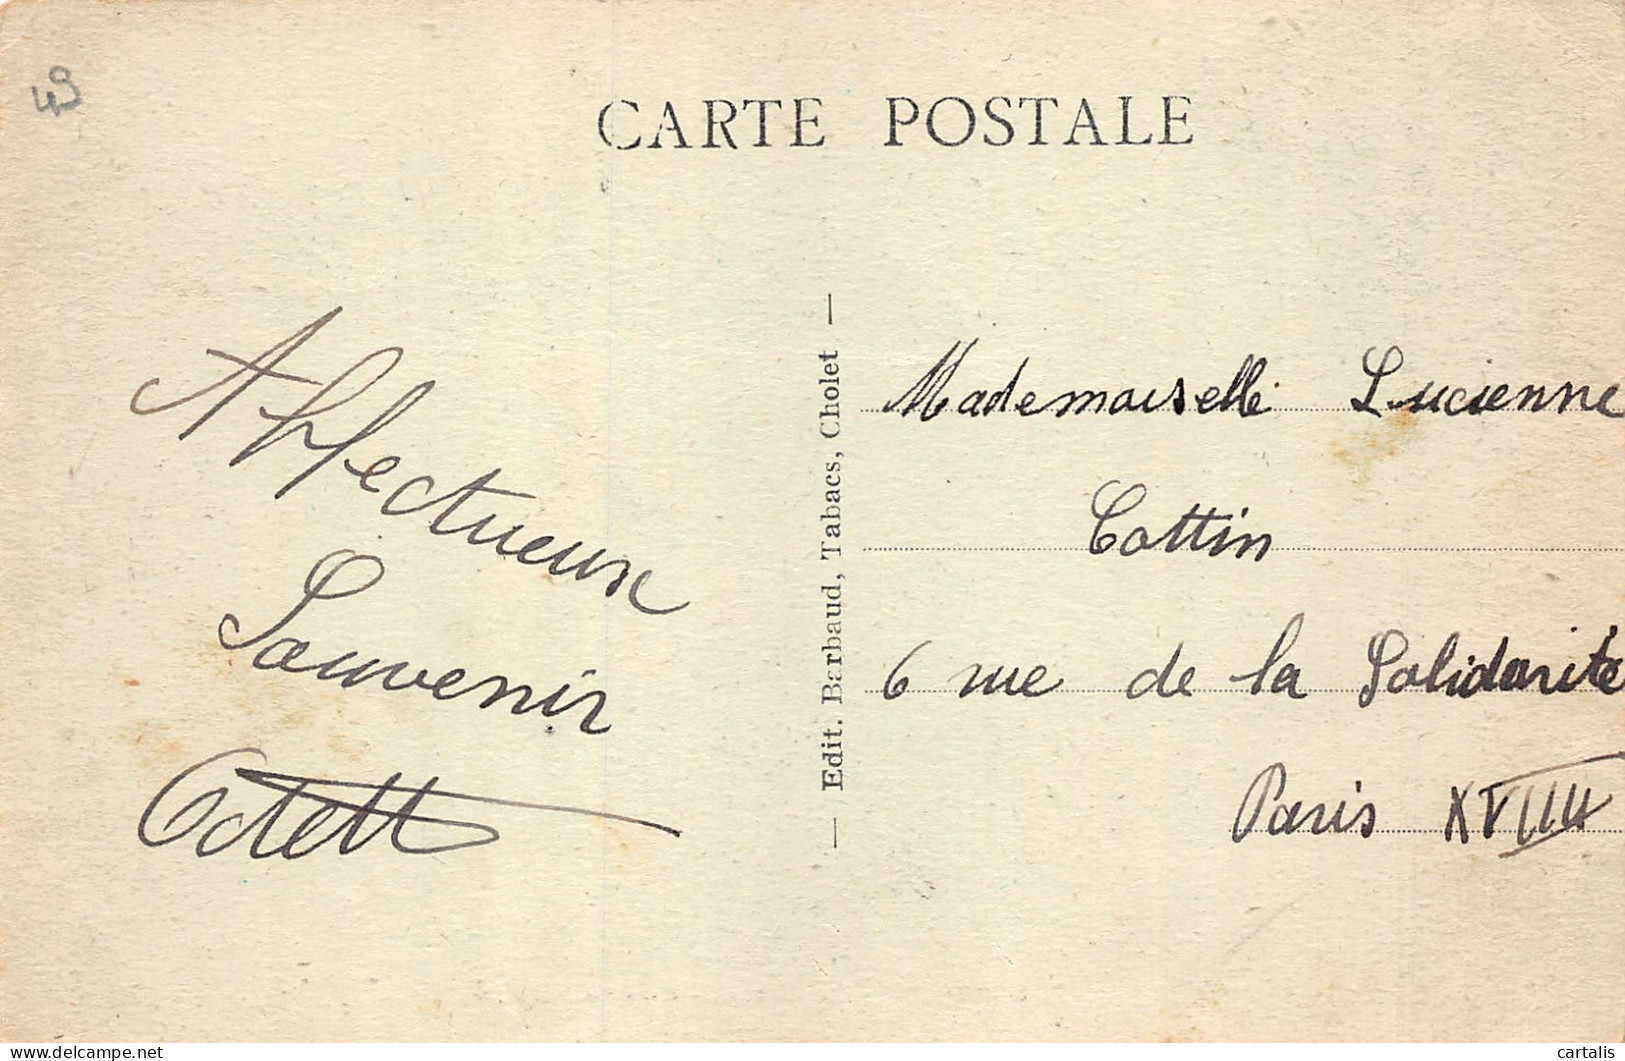 49
CARTE POSTALE
Affectueux
Souvenir
Odette
— Edit. Barbaud, Tabacs, Cholet —
Mademoiselle Lucienne
Cottin
6 rue de la Solidarité
Paris XVIII
delcampe.net
cartalis